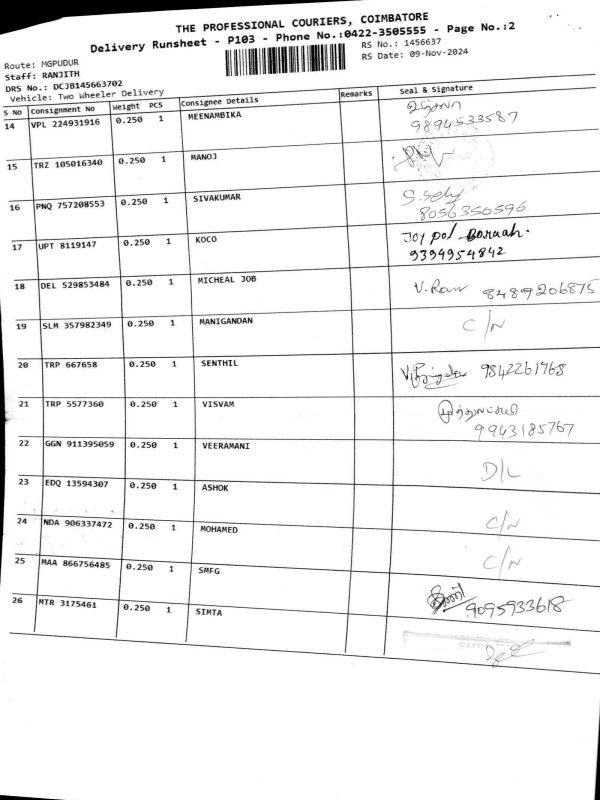 THE PROFESSIONAL COURIERS, COIMBATORE
Delivery Runsheet - P103 - Phone No.:0422-3505555 - Page No.:2
Route: MGPUDUR
RS No.: 1456637
Staff: RANJITH
RS Date: 09-Nov-2024
DRS No.: DCJB145663702
Vehicle: Two Wheeler Delivery
S No Consignment No Weight PCS Consignee Details Remarks Seal & Signature
14 VPL 224931916 0.250 1 MEENAMBIKA
9894533587
15 TRZ 105016340 0.250 1 MANOJ
16 PNQ 757208553 0.250 1 SIVAKUMAR
8056350596
17 UPT 8119147 0.250 1 KOCO Joy pal Boruah.
9394954842
18 DEL 529853484 0.250 1 MICHEAL JOB V. Ram 8489206875
19 SLM 357982349 0.250 1 MANIGANDAN C/N
20 TRP 667658 0.250 1 SENTHIL 9842261968
21 TRP 5577360 0.250 1 VISVAM
9943185767
22 GGN 911395059 0.250 1 VEERAMANI D/L
23 EDQ 13594307 0.250 1 ASHOK C/N
24 NDA 906337472 0.250 1 MOHAMED C/N
25 MAA 866756485 0.250 1 SMFG 9095933618
26 MTR 3175461 0.250 1 SIMTA